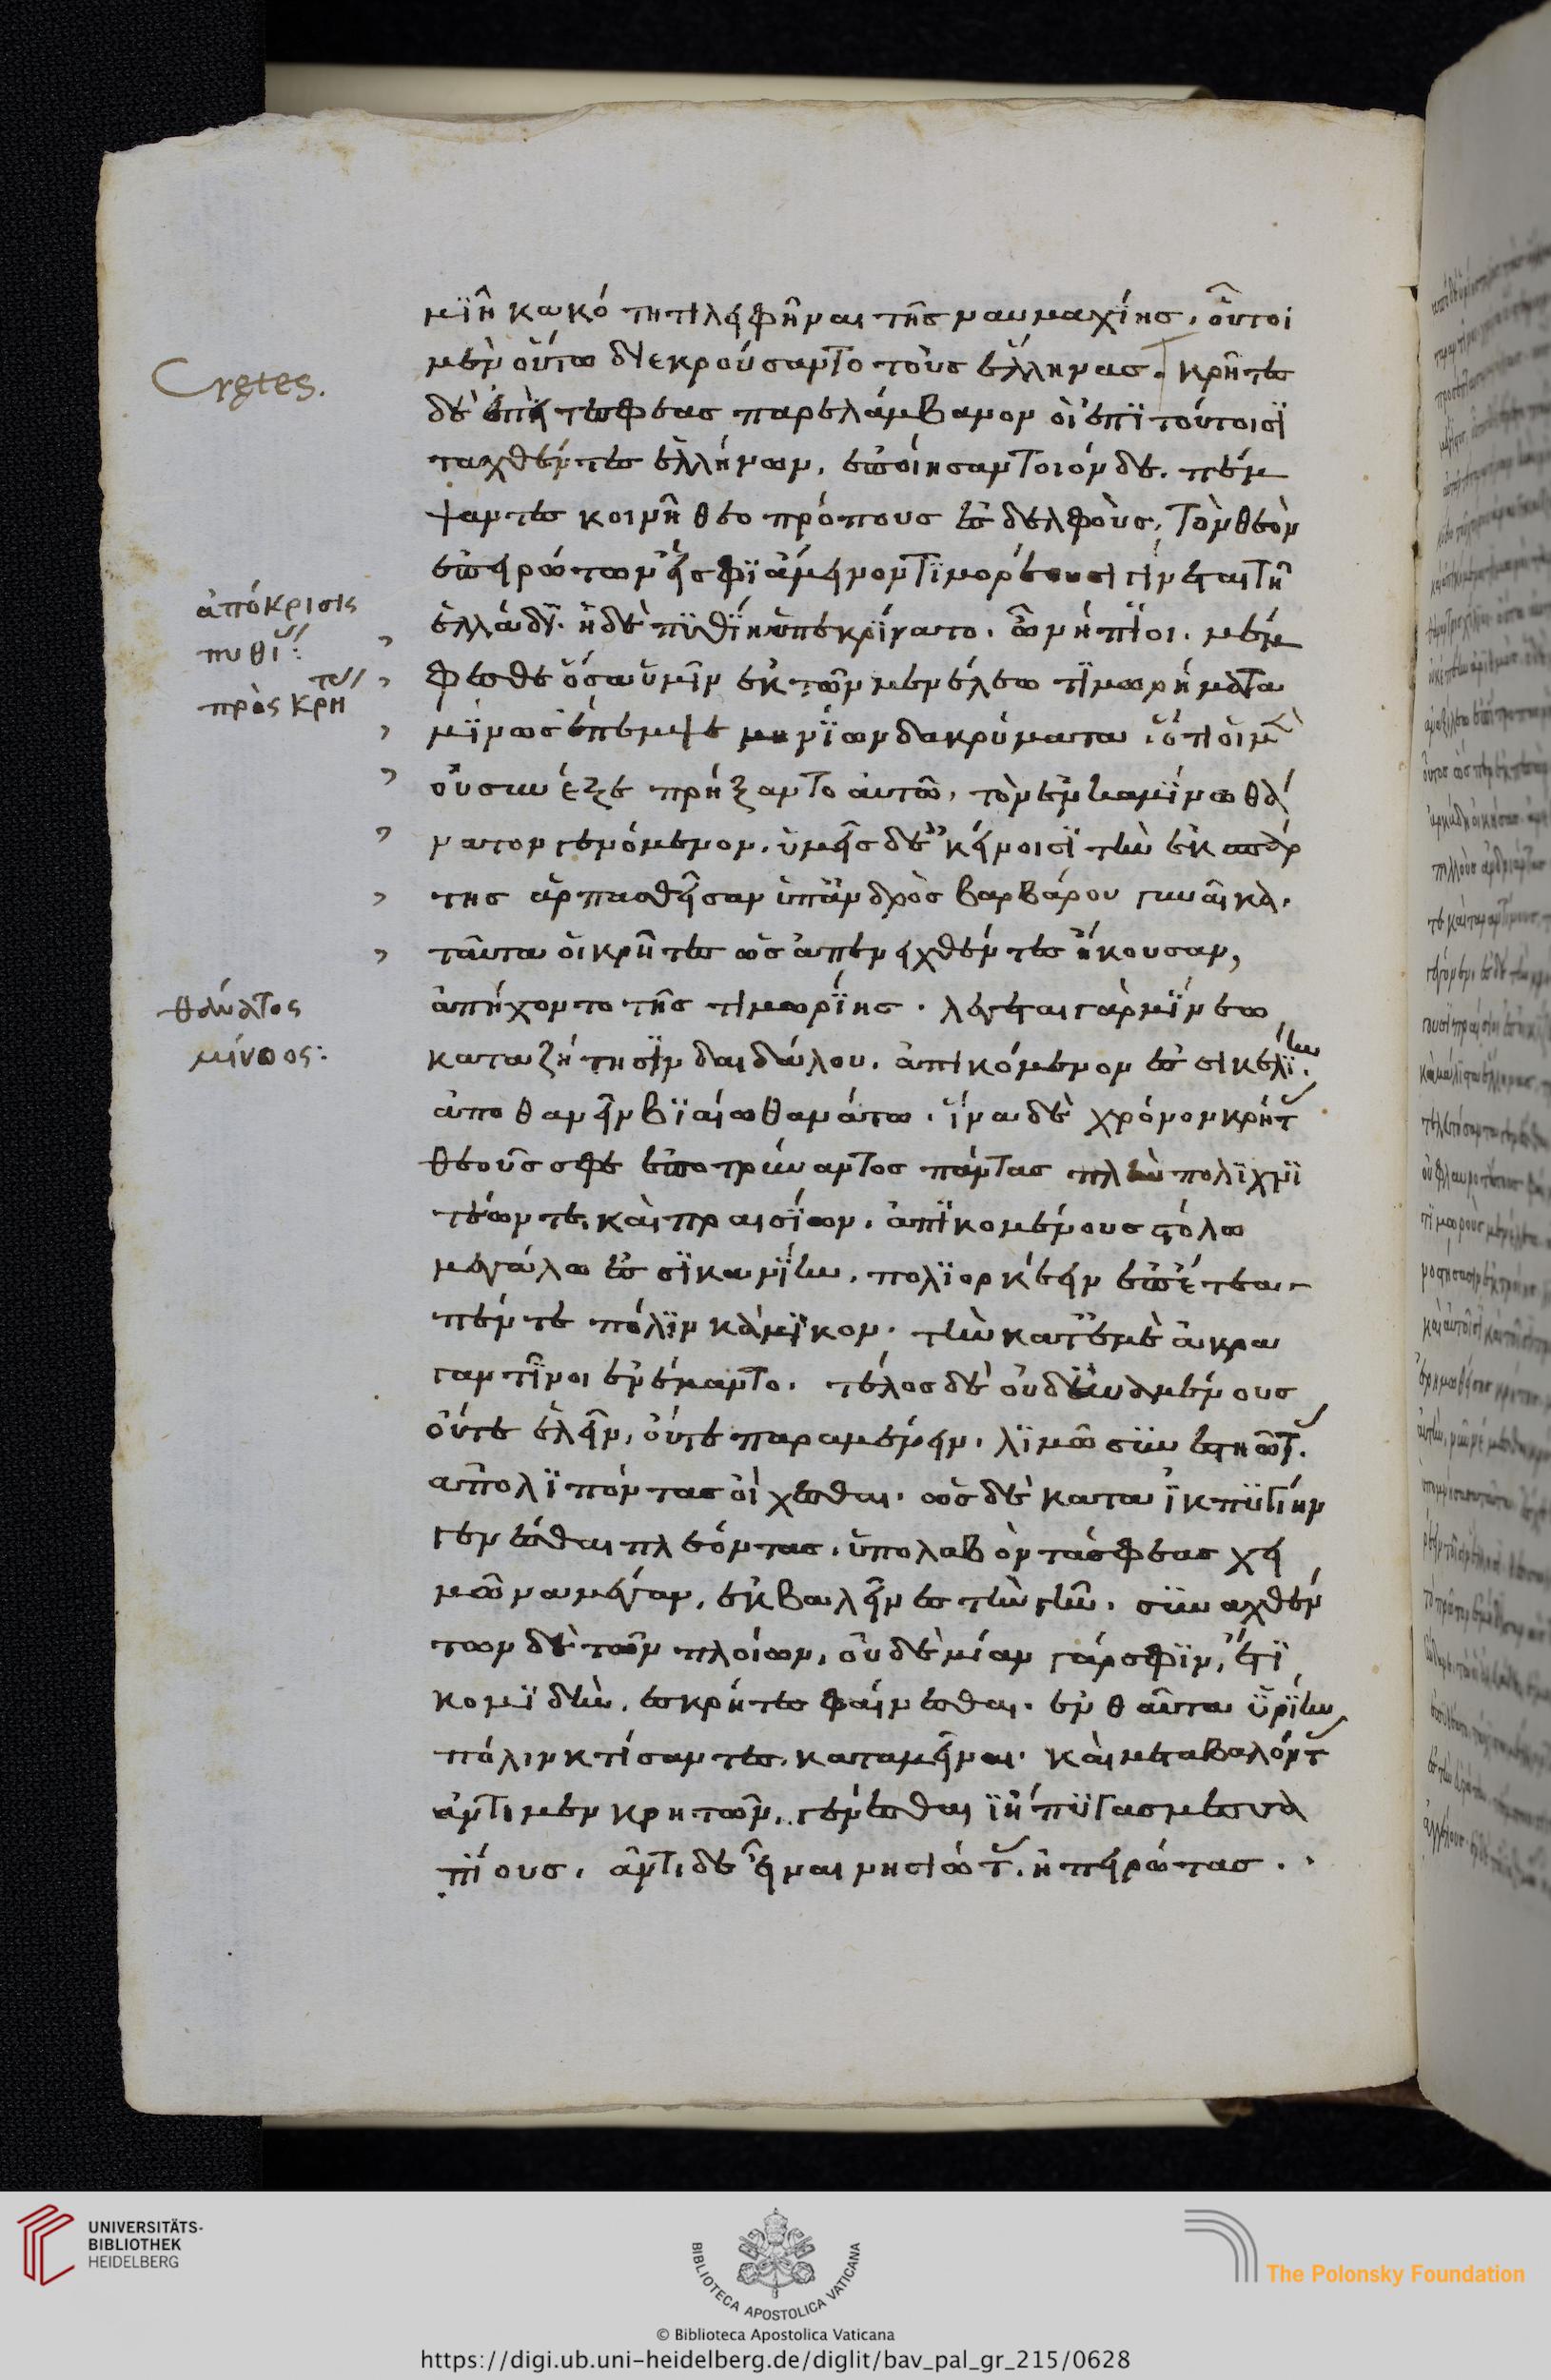 μΐῆ κακότητι λειφθῆναι τῆς ναυμαχίης. οὗτοι
Cretes.
μὲν οὕτω διεκρούσαντο τοὺς ἕλληνας. κρῆτες
δὲ ἐπεί τε σφεας παρελάμβανον οἱ ἐπὶ τούτοισϊ
ταχθέντες ἑλλήνων, ἐποίησαν τοιόνδε. πέμ
ψαντες κοινῆ θεοπρόπους ἐς δελφοὺς, τὸν θεὸν
ἐπειρώτων εἴ σφϊ ἄμεινον τϊμορέουσι γίνεται τῆ
ἀπόκρισις
ἑλλάδϊ. ἡ δὲ πϋθΐη ὑπεκρίνατο. ὦ νήπϊοι. μέμ
πυθι:
φεσθε ὅσα ὑμῖν ἐκ τῶν μενέλεω τϊμωρημάτων
πρὸς κρητ
μΐνως ἔπεμψε μηνΐων δακρύματα. ὅτι οἱ μὲν
οὐ συνεξεπρήξαντο αὐτῶ, τὸν ἐν καμΐνω θά
νατον γενόμενον. ὑμεῖς δὲ κείνοισϊ τὴν ἐκ σπάρ
της ἁρπασθεῖσαν ὑπ' ἀνδρὸς βαρβάρου γυναῖκα.
ταῦτα οἱ κρῆτες ὡς ἀπενειχθέντες ἤκουσαν,
θάνατος
ἀπήχοντο τῆς τιμωρΐης. λέγεται γὰρ μΐνεω
μίνωος:
κατα ζήτησϊν δαιδάλου. ἀπικόμενον ἐς σικελΐην.
ἀποθανεῖν βϊαίω θανάτω. ἵνα δὲ χρόνον κρῆτ
θεοῦ σφε ἐποτρύναντος πάντας πλὴν πολϊχνϊ
τέων τε καὶ πραισΐων. ἀπϊκομένους στόλω
μεγάλω ἐς σϊκανΐην. πολϊορκέειν ἐπ' ἔτεα
πέντε πόλϊν κάμϊκον. τὴν κατ' ἐμὲ ἀκρα
γαντῖνοι ἐνέμαντο. τέλος δὲ οὐ δυναμένους
οὔτε ἑλεῖν, οὔτε παραμένειν. λϊμῶ συνεστηῶτ.
ἀπολϊπόντας οἴχεσθαι. ὡς δὲ κατα ἰκπϋγίην
γενέσθαι πλέοντας. ὑπολαβόντα σφεας χει
μῶνα μέγαν, ἐκβαλεῖν ἐς τὴν γῆν. συναχθέν
των δὲ τῶν πλοίων, οὐδεμίαν γάρ σφϊν, ἔτϊ
κομϊδὴν. ἐς κρήτες φαίνεσθαι. ἐνθαῦτα ὑρΐην
πόλιν κτίσαντες. καταμεῖναι. καὶ μεταβαλόντ
ἀντὶ μὲν κρητῶν, γενέσθαι ϊήπϋγας μεσσα
πΐους. ἀντὶ δὲ εἶναι νησιώτ. ἠπειρώτας.